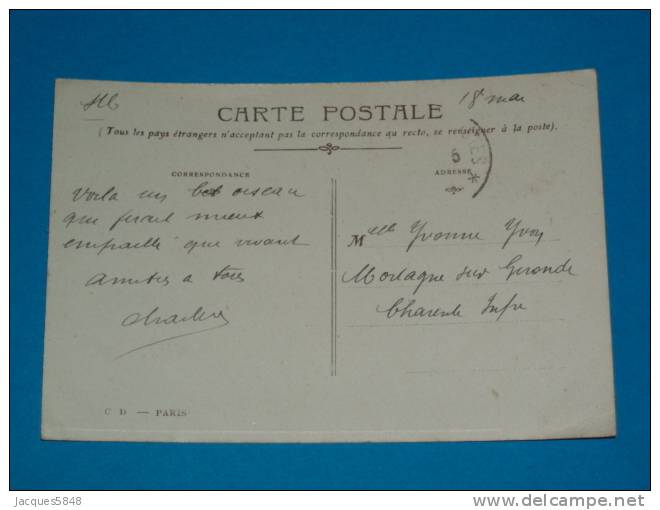 18 mai
CARTE POSTALE
(Tous les pays étrangers n'acceptant pas la correspondance au recto, se renseigner à la poste).
CORRESPONDANCE
Voila un bel oiseau
qui ferait mieux
empaillé que vivant
Amitiés a tous
Charles
ADRESSE
6
ES *
Melle Yvonne Yvon
Mortagne sur Gironde
Charente Infre
C D — PARIS
Jacques5848
delcampe.net